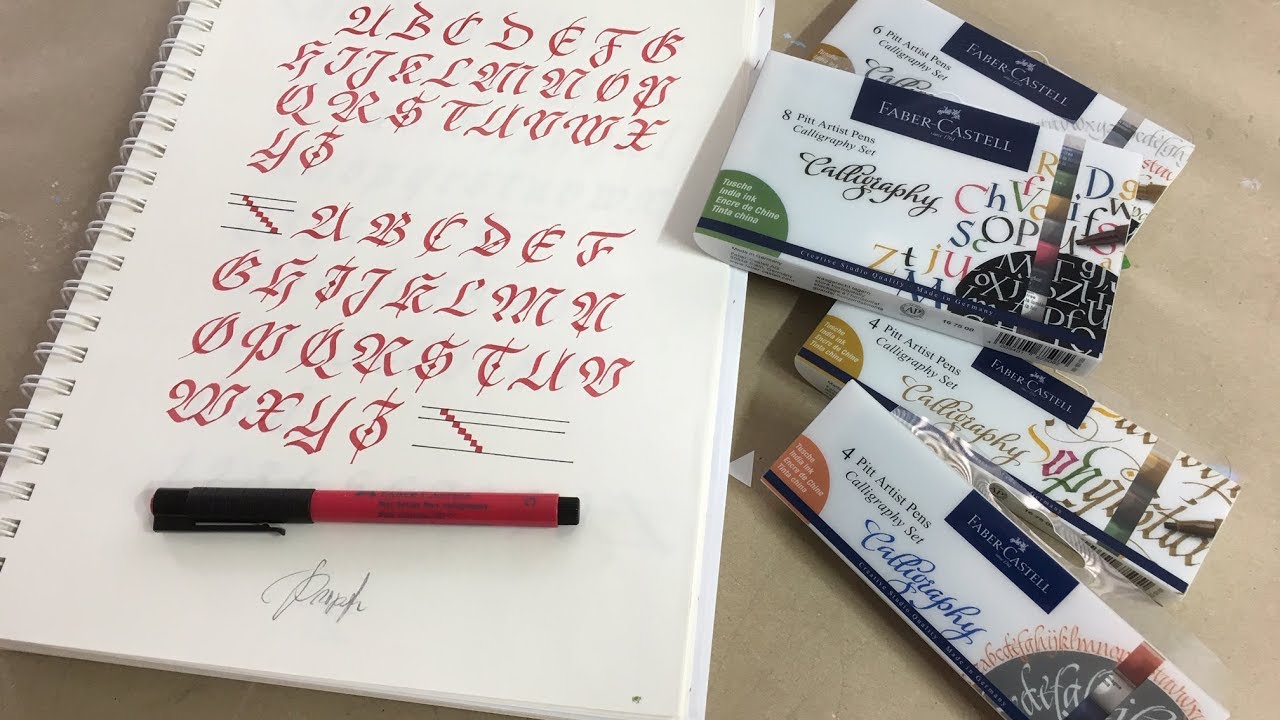 A B C D E F G
H I J K L M N O P
Q R S T U V W X
Y Z
A B C D E F
G H I J K L M N
O P Q R S T U V
W X Y Z
6 Pitt Artist Pens
FABER-CASTELL
since 1761
8 Pitt Artist Pens
Calligraphy Set
FABER-CASTELL
since 1761
Calligraphy
Tusche
India ink
Encre de Chine
Tinta china
Creative Studio Quality · Made in Germany
4 Pitt Artist Pens
Calligraphy Set
FABER-CASTELL
Calligraphy
Tusche
India ink
Encre de Chine
Tinta china
4 Pitt Artist Pens
Calligraphy Set
FABER-CASTELL
since 1761
Calligraphy
Tusche
India ink
Encre de Chine
Tinta china
Creative Studio Quality · Made in Germany
abcdefghijklmnop